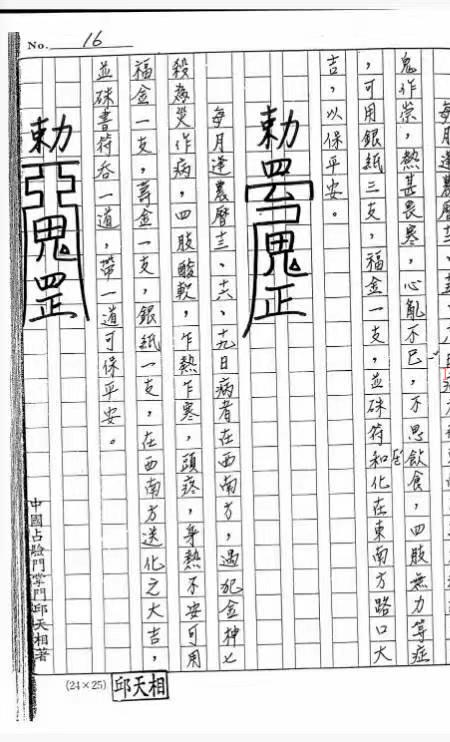 No. 16
每月逢農曆
鬼作祟,熱甚畏寒,心亂不已,不思飲食,四肢無力等症
,可用銀紙三支,福金一支,並硃符和化在東南方路口大
吉,以保平安。
勅 鬼正
每月逢農曆十三、十六、十九日病者在西南方,遇犯金神七
殺為災作病,四肢酸軟,乍熱乍寒,頭疼,身熱不安可用
福金一支,壽金一支,銀紙一支,在西南方送化之大吉,
並硃書符吞一道,帶一道可保平安。
勅 鬼罡
中國占驗門掌門邱天相著
(24×25) 邱天相